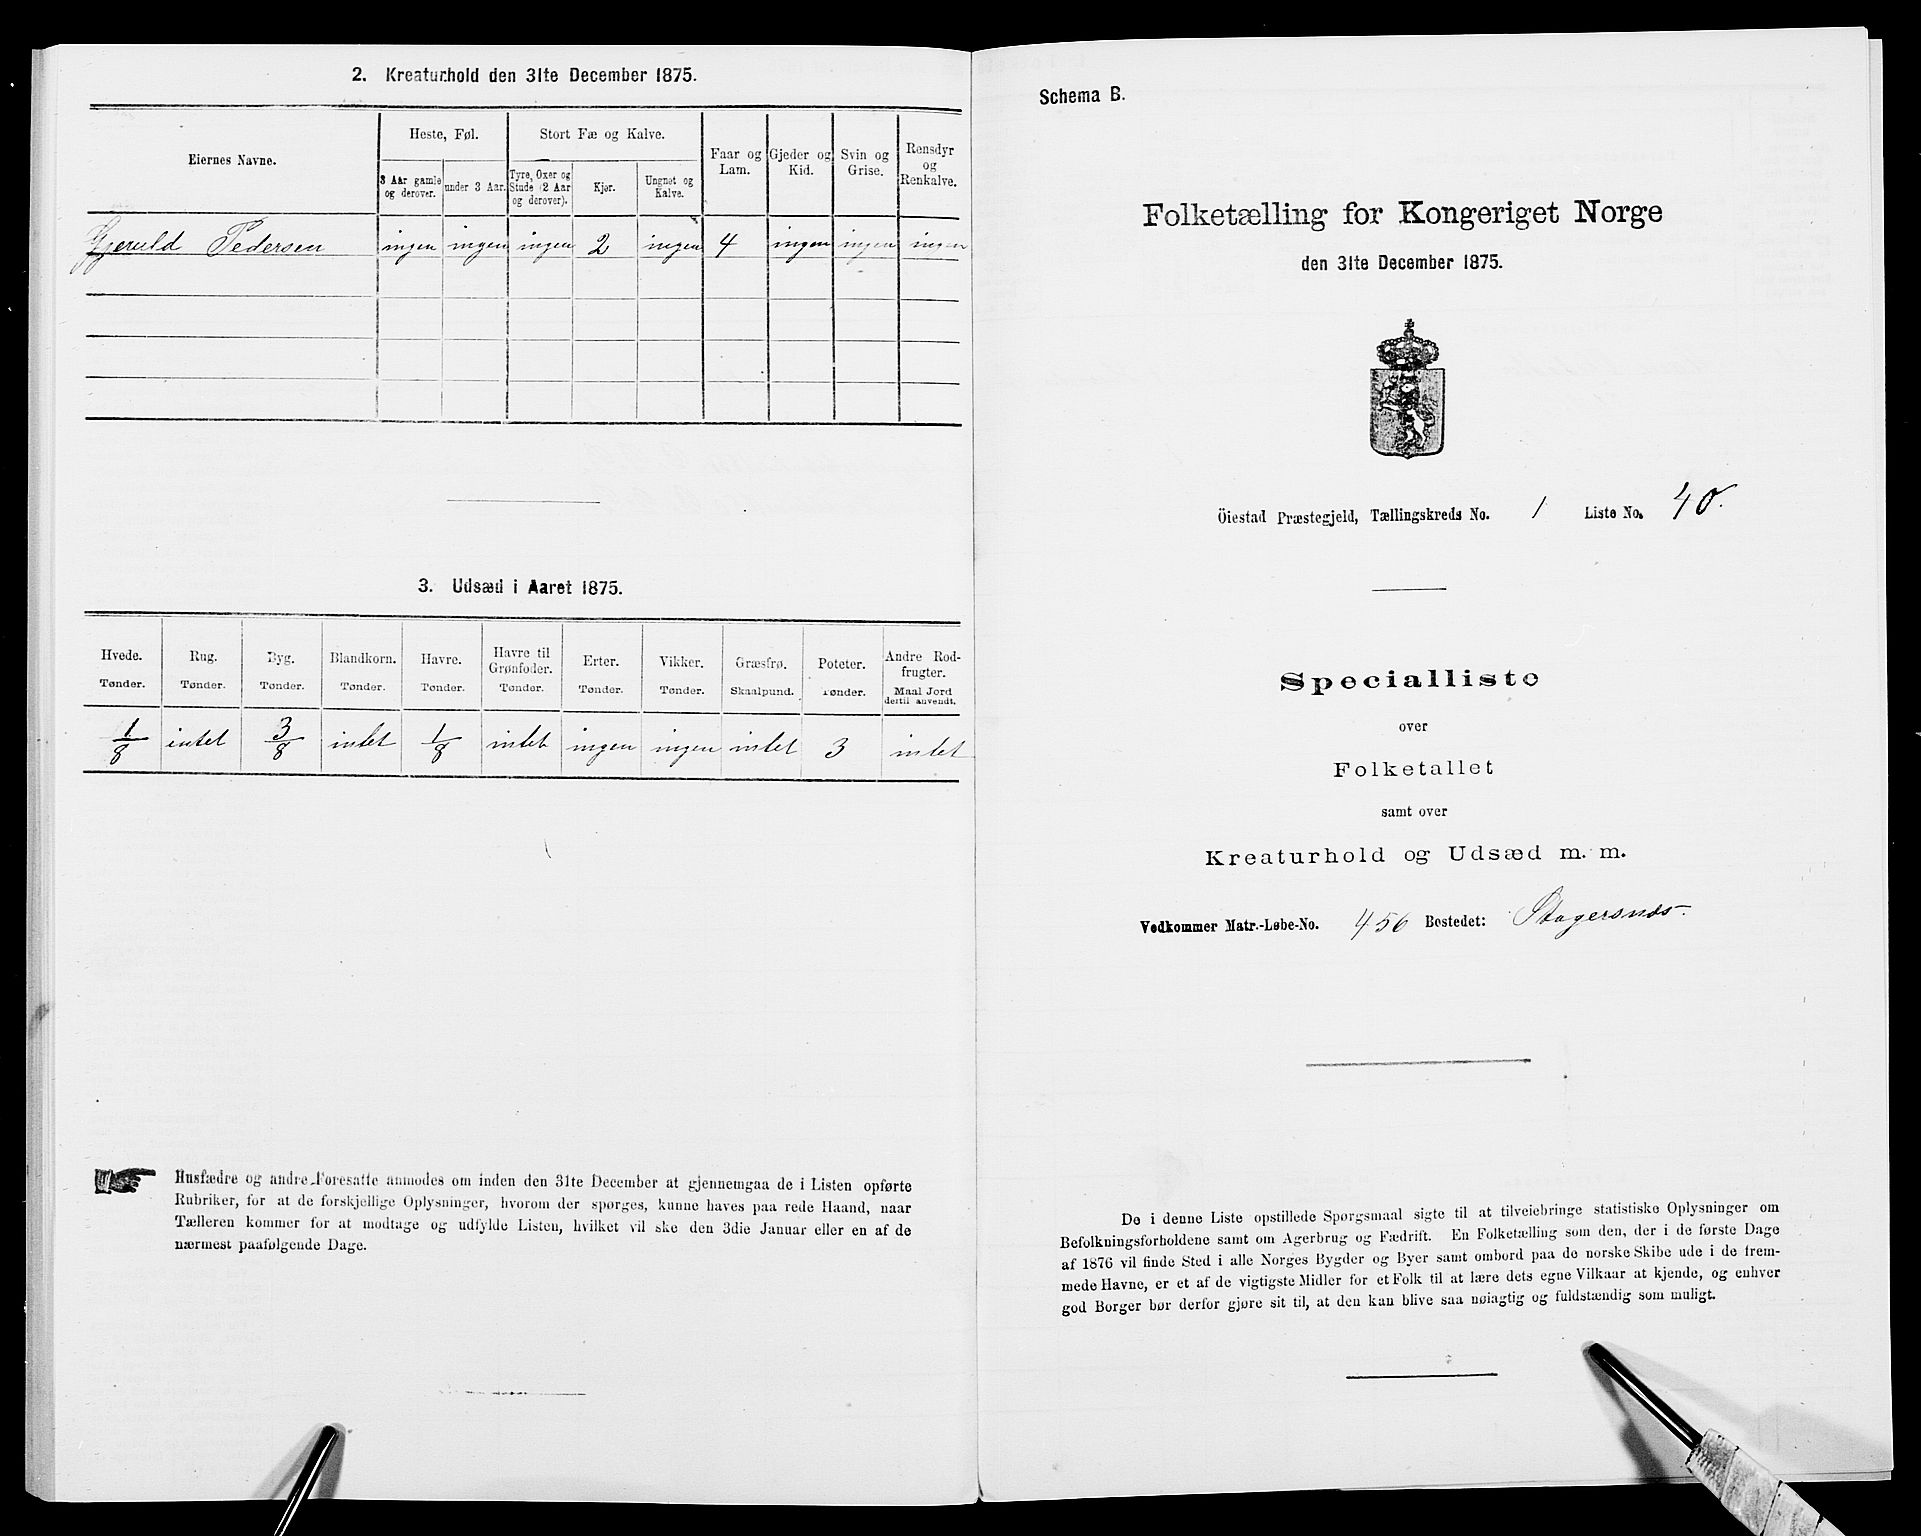 2. Kreaturhold den 31te December 1875.
Eiernes Navne.
Heste, Føl.
Stort Fæ og Kalve.
Faar og Lam.
Gjeder og Kid.
Svin og Grise.
Rensdyr og Renkalve.
3 Aar gamle og derover.
under 3 Aar.
Tyre, Oxer og Stude (2 Aar og derover).
Kjør.
Ungnøt og Kalve.
Gjeruld Pedersen ingen ingen ingen 2 ingen 4 ingen ingen ingen
3. Udsæd i Aaret 1875.
Hvede. Rug. Byg. Blandkorn. Havre. Havre til Grønfoder. Erter. Vikker. Græsfrø. Poteter. Andre Rod-frugter.
Tønder. Tønder. Tønder. Tønder. Tønder. Tønder. Tønder. Tønder. Skaalpund. Tønder. Maal Jord dertil anvendt.
1/8 intet 3/8 intet 1/8 intet ingen ingen intet 3 intet
Husfædre og andre Foresatte anmodes om inden den 31te December at gjennemgaa de i Listen opførte
Rubriker, for at de forskjellige Oplysninger, hvorom der spørges, kunne haves paa rede Haand, naar
Tælleren kommer for at modtage og udfylde Listen, hvilket vil ske den 3die Januar eller en af de
nærmest paafølgende Dage.
Schema B.
Folketælling for Kongeriget Norge
den 31te December 1875.
Öiestad Præstegjeld, Tællingskreds No. 1 Liste No. 40.
Specialliste
over
Folketallet
samt over
Kreaturhold og Udsæd m. m.
Vedkommer Matr.-Løbe-No. 456 Bostedet: Stagersnæs.
De i denne Liste opstillede Spørgsmaal sigte til at tilveiebringe statistiske Oplysninger om
Befolkningsforholdene samt om Agerbrug og Fædrift. En Folketælling som den, der i de første Dage
af 1876 vil finde Sted i alle Norges Bygder og Byer samt ombord paa de norske Skibe ude i de frem-
mede Havne, er et af de vigtigste Midler for et Folk til at lære dets egne Vilkaar at kjende, og enhver
god Borger bør derfor gjøre sit til, at den kan blive saa nøiagtig og fuldstændig som muligt.